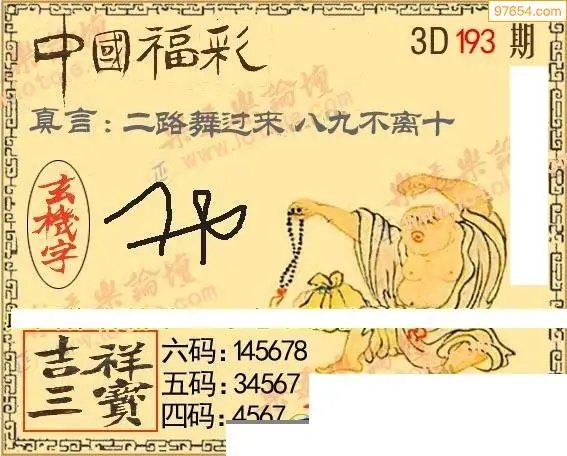 97654.com
中國福彩
3D 193 期
真言:二路舞过来 八九不离十
玄機字
吉祥三寶
六码:145678
五码:34567
四码:4567